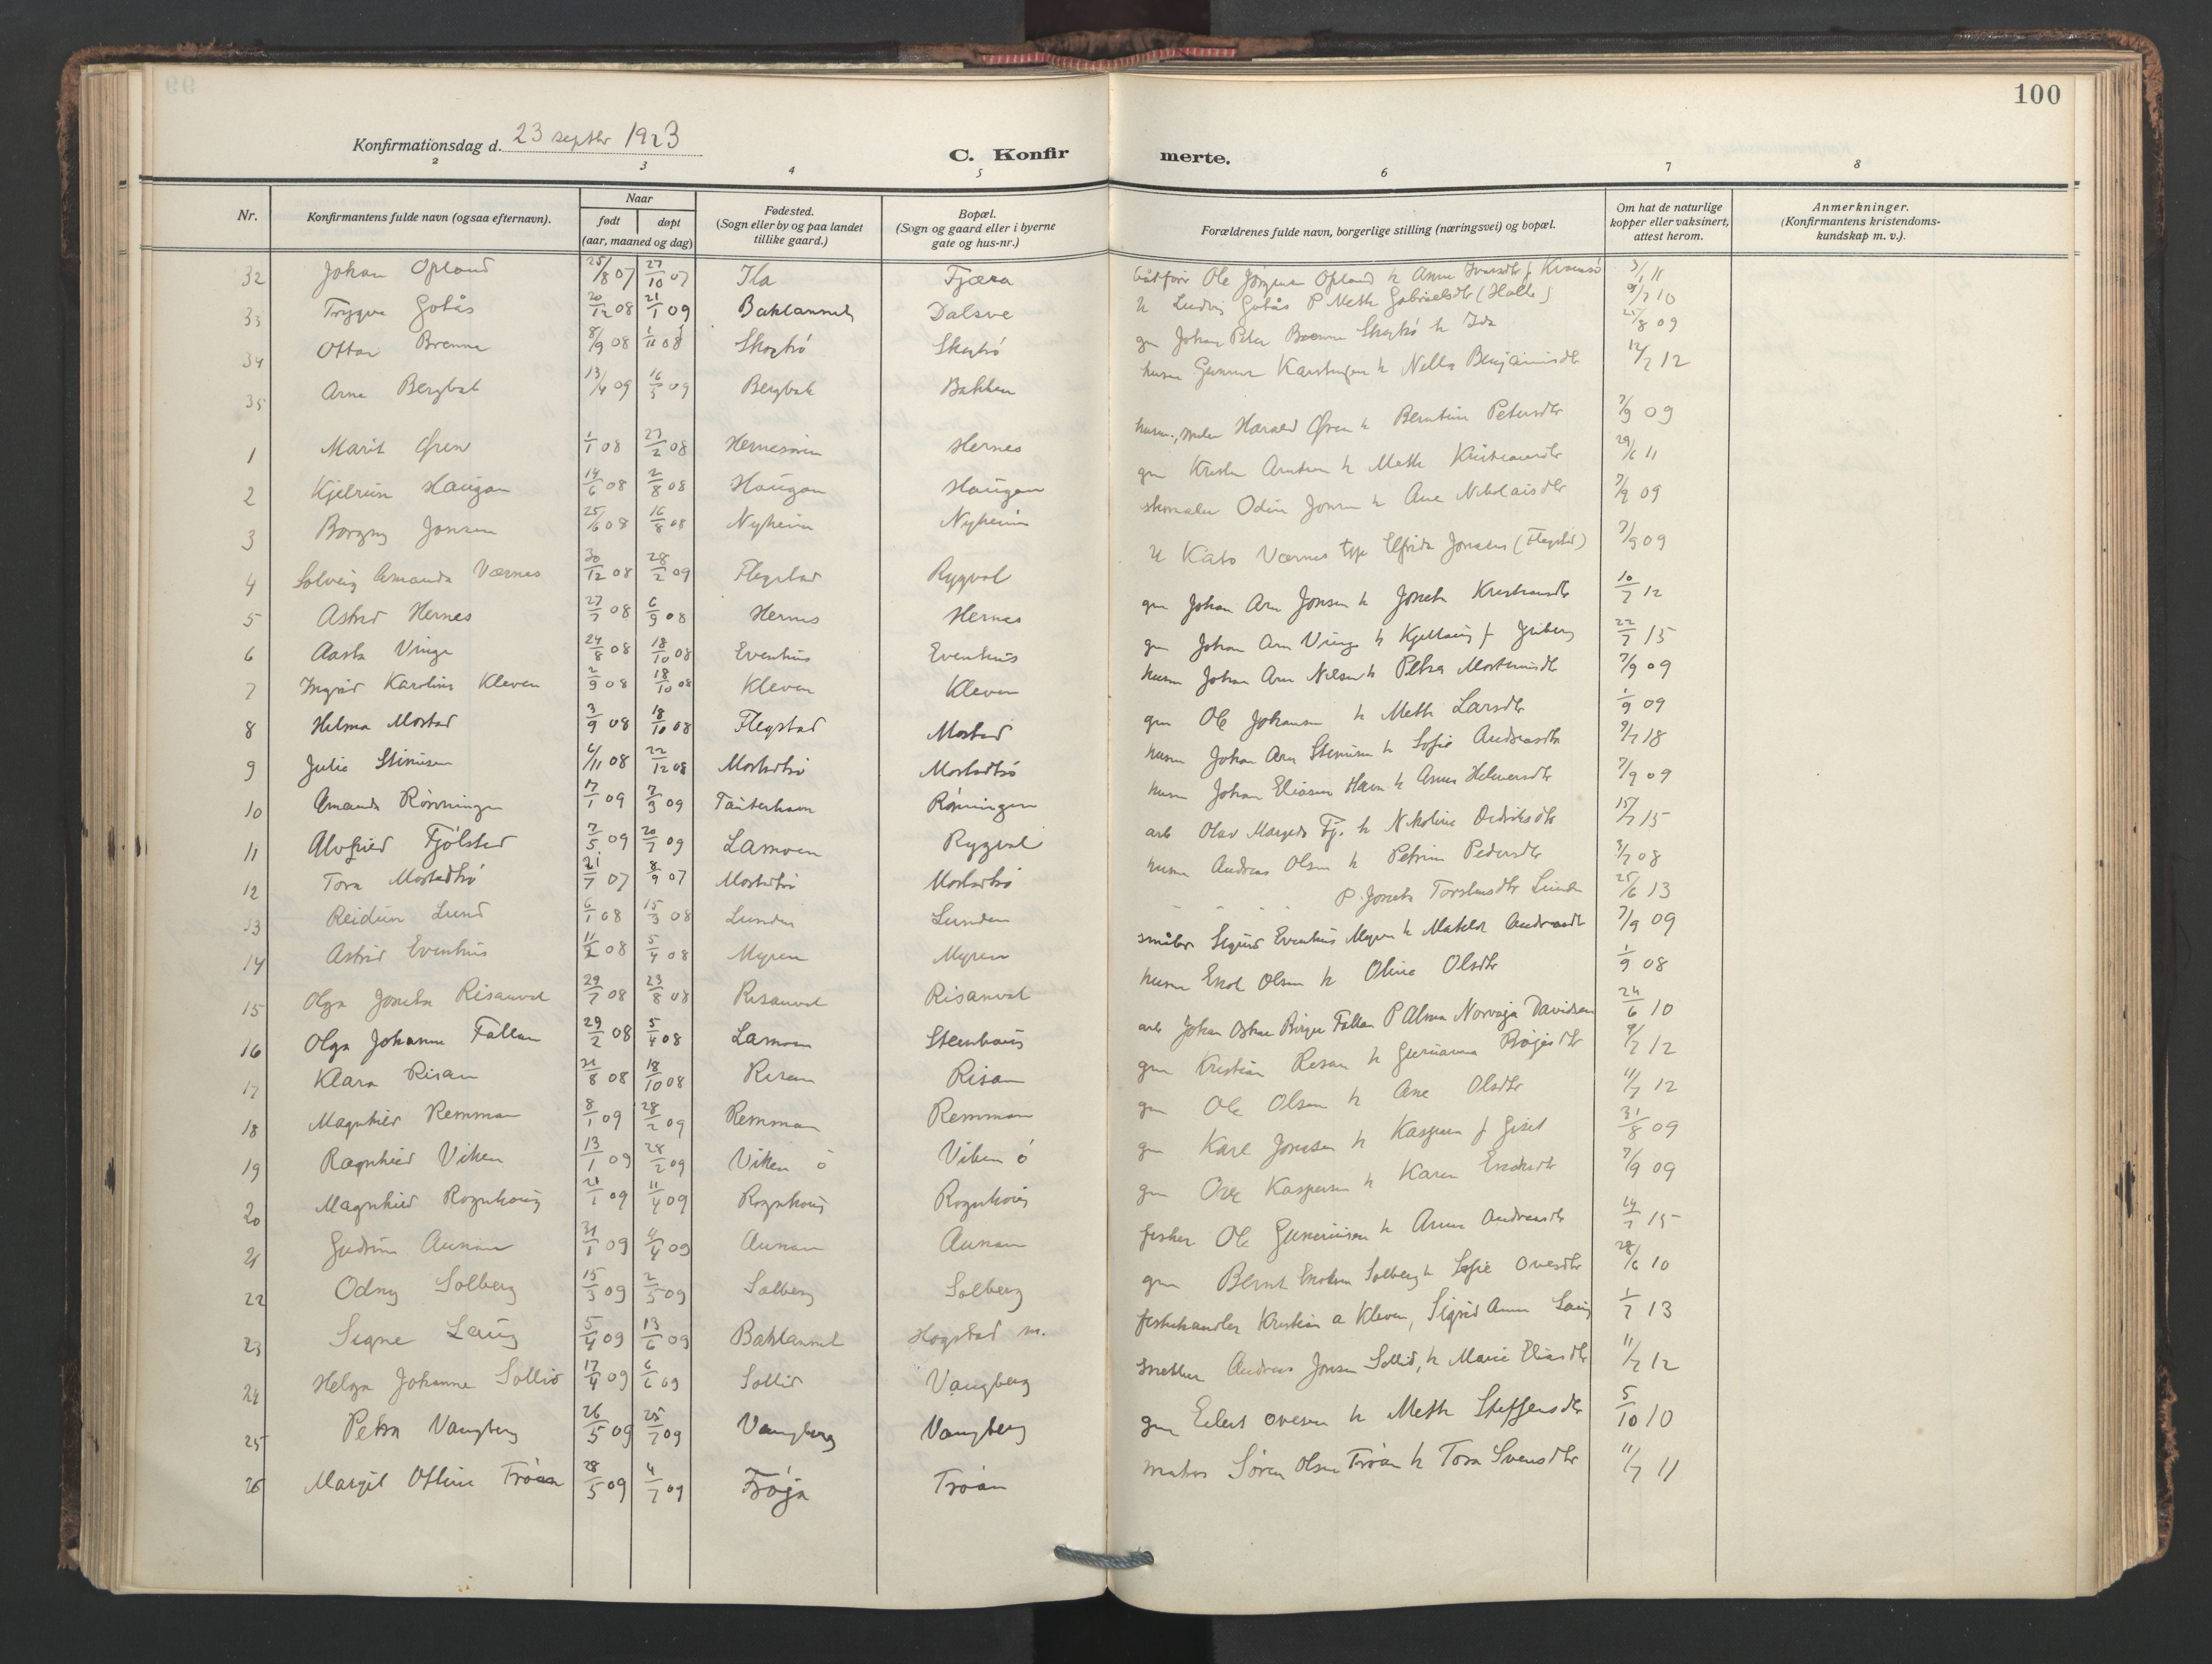 100
Konfirmationsdag d. 23 septbr 1923
C. Konfir merte.
2 3 4 5 6 7 8
Nr. Konfirmantens fulde navn (ogsaa efternavn). Naar født døpt (aar, maaned og dag) Fødested. (Sogn eller by og paa landet tillike gaard.) Bopæl. (Sogn og gaard eller i byerne gate og hus-nr.) Forældrenes fulde navn, borgerlige stilling (næringsvei) og bopæl. Om hat de naturlige kopper eller vaksinert, attest herom. Anmerkninger. (Konfirmantens kristendoms-kundskap m. v.).
32 Johan Opland 25/8 07 27/10 07 Ila Fjæra Ole Jørgen Opland h Anna
33 Trygve Gotås 20/12 08 21/1 09 Baklannet Dalsve U Ludvig Gotås P Meth Gabrielsdtr (Halle) 10
34 Ottar Brenne 8/9 08 1/11 08 Skogtrø Skogtrø gm Johan Peter Brenne Skogtrø h Ida 09
35 Arne Bergbak 13/4 09 16/5 09 Bergbak Bakken husm Gunnar Karstensen h Nella Benjaminsdtr 12/7 12
1 Marit Øren 1/1 08 23/2 08 Hernesøren Hernes Harald Øren h Berntine Petersdtr 7/9 09
2 Kjelrun Haugan 14/6 08 2/8 08 Haugan Haugan gm Kristen Arntsen h Meth Kristiansdtr 29/6 11
3 Borgny Jonsen 25/6 08 16/8 08 Nyheim Nyheim skomaker Odin Jonsen h Ane Nikolaisdtr 7/9 09
4 Solveig Amanda Værnes 30/12 08 28/2 09 Flegstad Rygvol U Kato Værnes Elfrida Jonsen (Flegstad) 7/9 09
5 Astrid Hernes 27/7 08 6/9 08 Hernes Hernes gm Johan Arn Jonsen h Joneta Kristiansdtr 10/7 12
6 Aasta Vinge 24/8 08 18/10 08 Eventhus Eventhus gm Johan Arn Vinge h Kjellaug f 22/7 15
7 Ingrid Karoline Kleven 2/9 08 18/10 08 Kleven Kleven husm Johan Arn Nilsen h Petra Mortensdtr 7/9 09
8 Helma Mostad 3/9 08 18/10 08 Flegstad Mostad gm Ole Johansen h Meth Larsdtr 1/9 09
9 Julie Stinusen 6/11 08 22/12 08 Mostadtrø Mostadtrø husm Johan Arn Stinusen h Sofie Andreasdtr 9/7 18
10 Amanda Rønningen 17/1 09 7/3 09 Tauterhavn Rønningen husm Johan Eliasen Havn h Anna Helmersdtr 7/9 09
11 Alvfried Fjølstad 7/5 09 20/7 09 Lamoen Rygvol arb Olav Fj. h Nikoline Dedriksdtr 15/7 15
12 Tora Mostadtrø 21/7 07 8/9 07 Mostadtrø Mostadtrø husm Andreas Olsen h Petrine Pedersdtr 3/7 08
13 Reidun Lund 6/1 08 15/3 08 Lunden Lunden - - - - P. Joneta Torstensdtr Lunden 25/6 13
14 Astrid Eventhus 11/2 08 5/4 08 Myren Myren småbr Sigurd Eventhus Myren h Matilde Andreasdtr 7/9 09
15 Olga Joneta Risanvol 29/7 08 23/8 08 Risanvol Risanvol husm Enok Olsen h Oline Olsdtr 1/9 08
16 Olga Johanne Fallan 29/2 08 5/4 08 Lamoen Steenhaug arb Johan Oskar Birger Fallan P Alma Norveja Davidsen 24/6 10
17 Klara Risan 21/8 08 18/10 08 Risan Risan gm Kristian Resan h 9/7 12
18 Magnhild Remman 8/1 09 28/2 09 Remman Remman gm Ole Olsen h Ane Olsdtr 11/7 12
19 Ragnhild Viken 13/1 09 28/2 09 Viken ø Viken ø gm Karl Jonsen h f 31/8 09
20 Magnhild Rognhaug 21/1 09 11/4 09 Rognhaug Rognhaug gm Ove Kaspersen h Karen 7/9 09
21 Gudrun Aunan 31/1 09 4/4 09 Aunan Aunan fisker Ole h Anna Andreasdtr 14/7 15
22 Odny Solberg 15/3 09 2/5 09 Solberg Solberg gm Bernt Enoksen Solberg h Sofie Ovesdtr 28/6 10
23 Signe Laug 5/4 09 13/6 09 Baklannet Hogstad m. fiskehandler Kristian a Kleven, Sigrid Anna Laug 1/7 13
24 Helga Johanne Sollid 17/4 09 6/6 09 Sollid Vangberg snekker Andreas Jonsen Sollid, h Marie Eliasdtr 11/7 12
25 Petra Vangberg 26/5 09 25/7 09 Vangberg Vangberg gm Eilert Ovesen h Meth Steffensdtr 5/10 10
26 Margit Otline Trøan 28/5 09 4/7 09 Frøja Trøan Søren Olsen Trøan h Tora Svensdtr 11/7 11